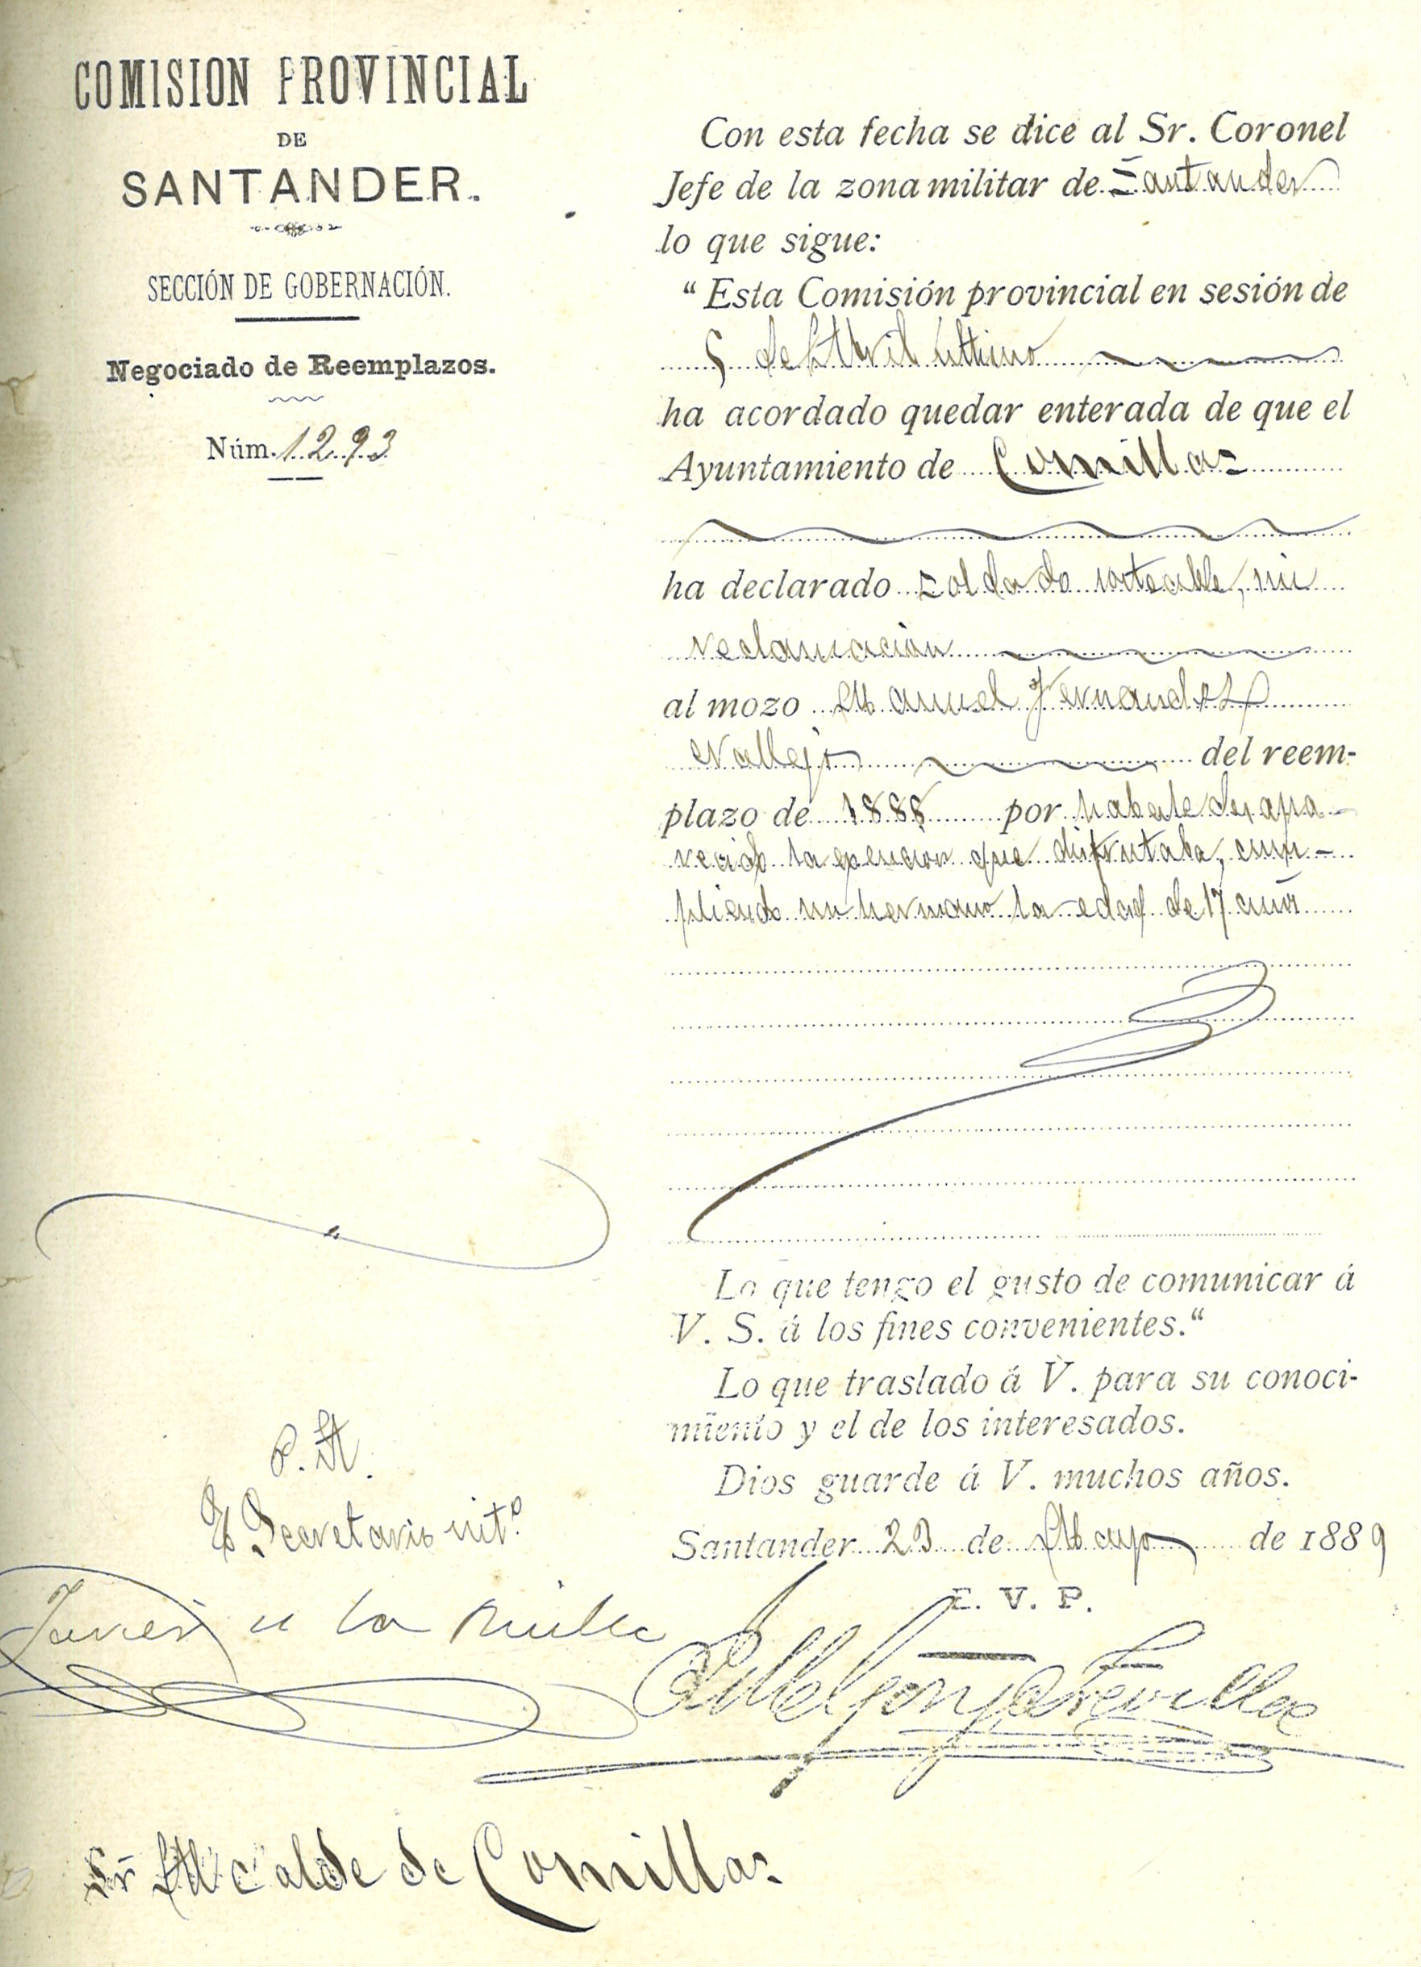 COMISION PROVINCIAL
DE
SANTANDER.
SECCIÓN DE GOBERNACIÓN.
Negociado de Reemplazos.
Núm. 1293
Con esta fecha se dice al Sr. Coronel
Jefe de la zona militar de Santander
lo que sigue:
"Esta Comisión provincial en sesión de
5 de Abril último
ha acordado quedar enterada de que el
Ayuntamiento de Comillas
ha declarado soldado sorteable, sin
reclamación
al mozo Manuel Fernandez
Vallejo del reem-
plazo de 1888 por haberle desapa-
recido la exencion que disfrutaba, cum-
pliendo un hermano la edad de 17 años
Lo que tengo el gusto de comunicar á
V. S. á los fines convenientes."
Lo que traslado á V. para su conoci-
miento y el de los interesados.
Dios guarde á V. muchos años.
Santander 23 de Mayo de 1889
E. V. P.
P. A.
El Secretario intº.
Javier de la
Sr Alcalde de Comillas